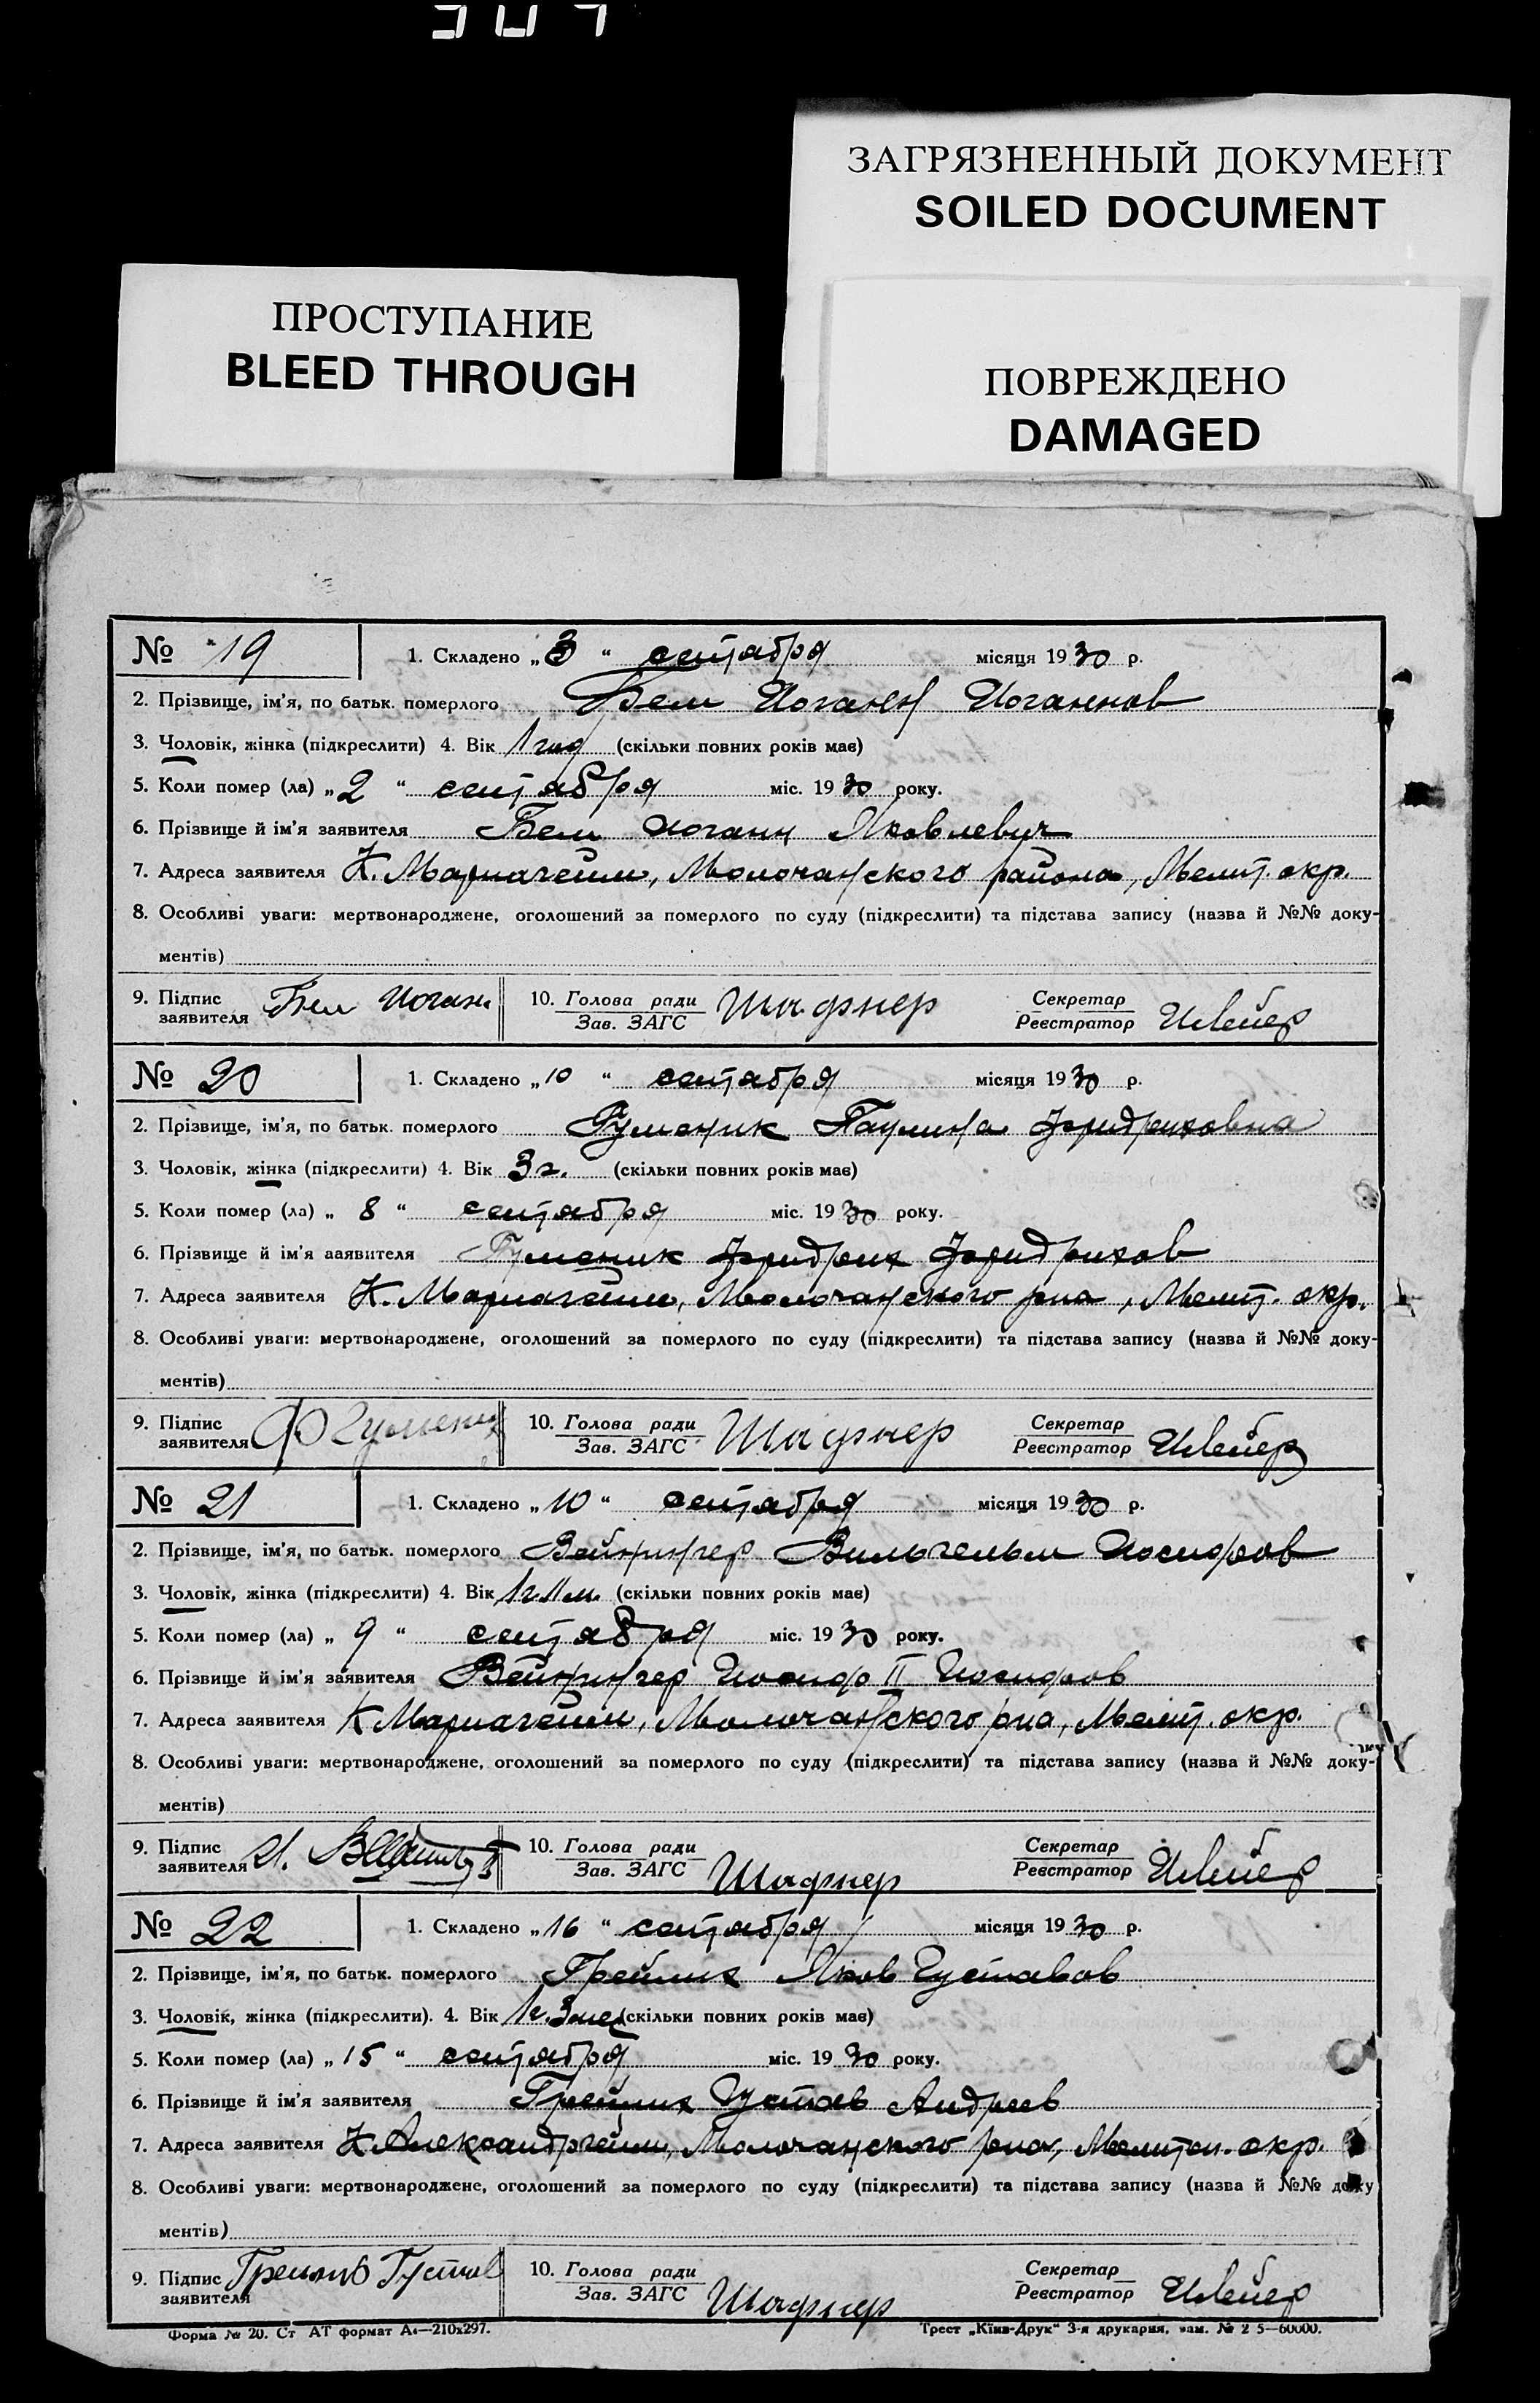 ЗАГРЯЗНЕННЫЙ ДОКУМЕНТ
SOILED DOCUMENT
ПРОСТУПАНИЕ
BLEED THROUGH
ПОВРЕЖДЕНО
DAMAGED
№ 19 1. Складено „3“ сентября місяця 1930 р.
2. Прізвище, ім'я, по батьк. померлого Бем Иоганн Иоганнов
3. Чоловік, жінка (підкреслити) 4. Вік 1 год (скільки повних років має)
5. Коли помер (ла) „2“ сентября міс. 1930 року.
6. Прізвище й ім'я заявителя Бем Иоганн Яковлевич
7. Адреса заявителя К. Мариагейм, Молочанского района, Мелит. окр.
8. Особливі уваги: мертвонароджене, оголошений за померлого по суду (підкреслити) та підстава запису (назва й №№ доку-
ментів)
9. Підпис заявителя Бем Иоганн 10. Голова ради Зав. ЗАГС Шафнер Секретар Реєстратор Швейер
№ 20 1. Складено „10“ сентября місяця 1930 р.
2. Прізвище, ім'я, по батьк. померлого Гуменик Паулина Фридриховна
3. Чоловік, жінка (підкреслити) 4. Вік 3 г. (скільки повних років має)
5. Коли помер (ла) „8“ сентября міс. 1930 року.
6. Прізвище й ім'я заявителя Гуменик Фридрих Фридрихов
7. Адреса заявителя К. Мариагейм, Молочанского р-на, Мелит. окр.
8. Особливі уваги: мертвонароджене, оголошений за померлого по суду (підкреслити) та підстава запису (назва й №№ доку-
ментів)
9. Підпис заявителя Ф Гуменик 10. Голова ради Зав. ЗАГС Шафнер Секретар Реєстратор Швейер
№ 21 1. Складено „10“ сентября місяця 1930 р.
2. Прізвище, ім'я, по батьк. померлого Вейнингер Вильгельм Иосифов
3. Чоловік, жінка (підкреслити) 4. Вік 1 г. 11 м. (скільки повних років має)
5. Коли помер (ла) „9“ сентября міс. 1930 року.
6. Прізвище й ім'я заявителя Вейнингер Иосиф II Иосифов
7. Адреса заявителя К Мариагейм, Молочанского р-на, Мелит. окр.
8. Особливі уваги: мертвонароджене, оголошений за померлого по суду (підкреслити) та підстава запису (назва й №№ доку-
ментів)
9. Підпис заявителя И. 10. Голова ради Зав. ЗАГС Шафнер Секретар Реєстратор Швейер
№ 22 1. Складено „16“ сентября місяця 1930 р.
2. Прізвище, ім'я, по батьк. померлого Греймих Яков Густавов
3. Чоловік, жінка (підкреслити). 4. Вік 1 г. 3 мес (скільки повних років має)
5. Коли помер (ла) „15“ сентября міс. 1930 року.
6. Прізвище й ім'я заявителя Греймих Густав Андреев
7. Адреса заявителя К. Александргейм, Молочанского р-на, Мелитоп. окр.
8. Особливі уваги: мертвонароджене, оголошений за померлого по суду (підкреслити) та підстава запису (назва й №№ доку
ментів)
9. Підпис заявителя Густав 10. Голова ради Зав. ЗАГС Шафнер Секретар Реєстратор Швейер
Форма № 20. Ст АТ формат А4—210x297. Трест „Київ-Друк“ 3-я друкарня, зам. № 2 5—60000.